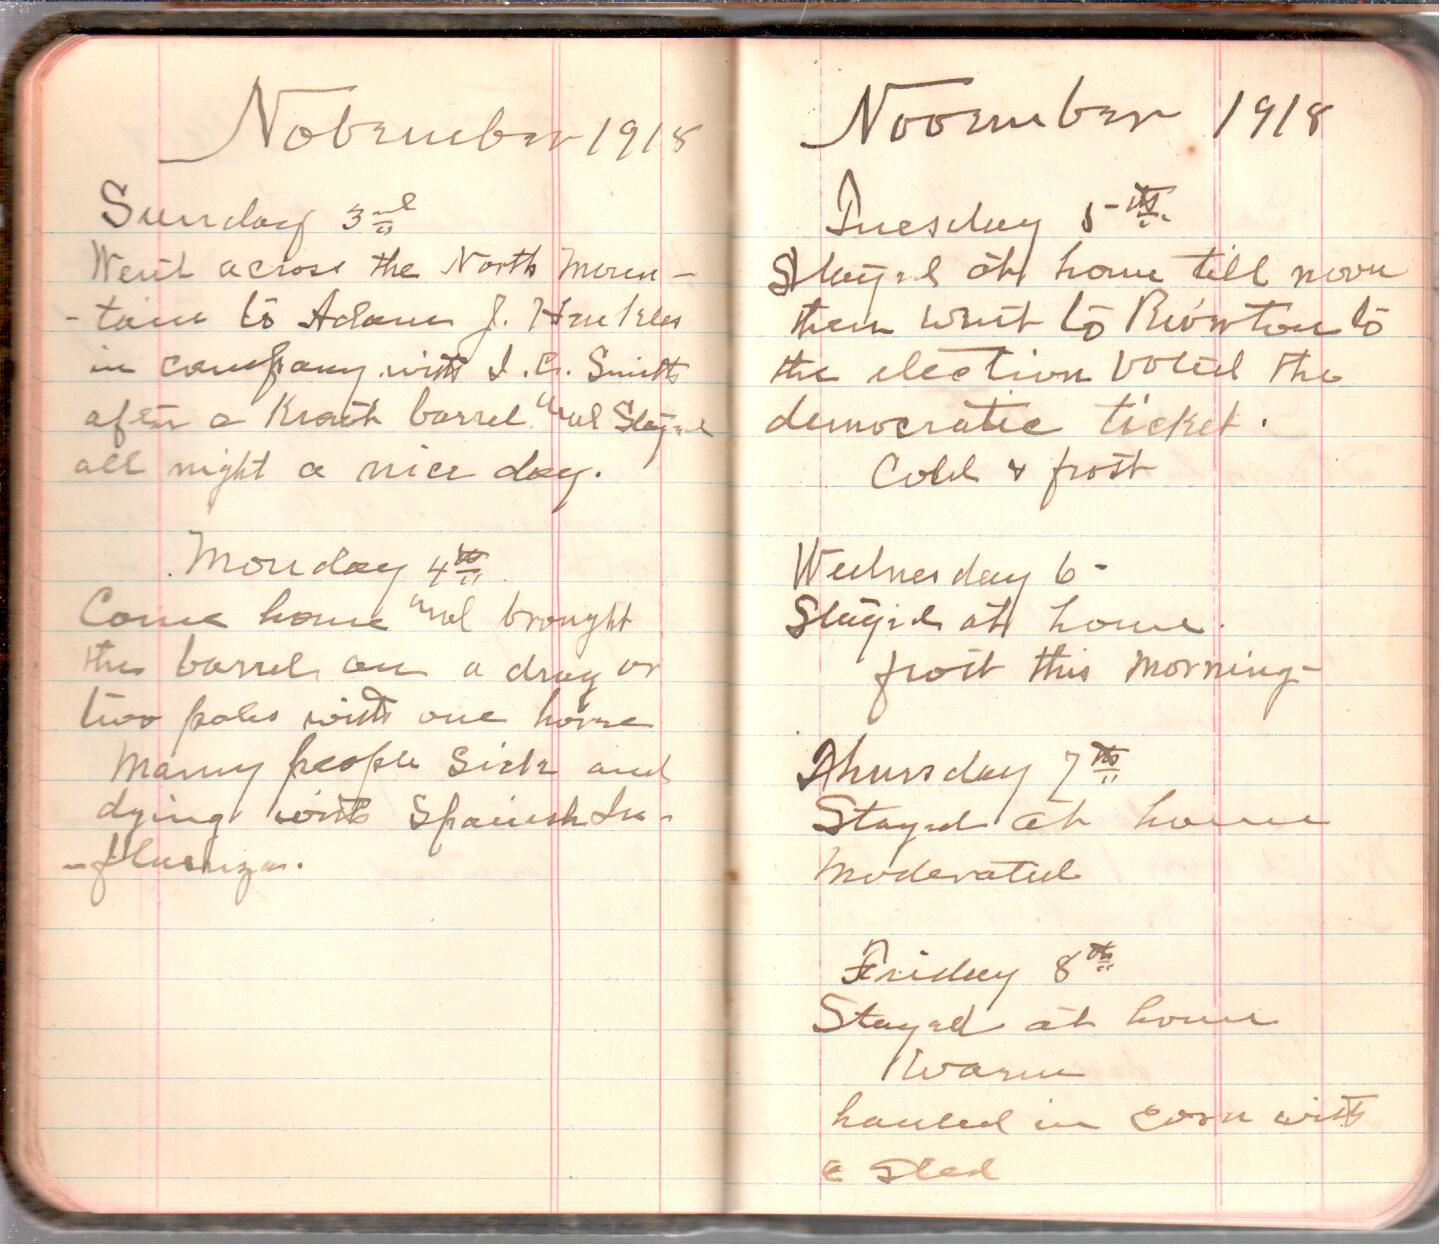 November 1918
Sunday 3rd
Went across the North Moun-
-tain to Adam J. Henkles
in company with I. C. Smith
after a Kraut barrel and Stayed
all night a nice day.
Monday 4th
Come home and brought
the barrel on a drag or
two poles with one horse
Many people Sick and
dying with Spanish In-
-fluenza.
November 1918
Tuesday 5th
Stayed at home till noon
then went to to
the election voted the
democratic ticket.
Cold & frost
Wednesday 6-
Stayed at home.
frost this morning-
Thursday 7th
Stayed at home
Moderated
Friday 8th
Stayed at home
Warm
hauled in corn with
a Sled